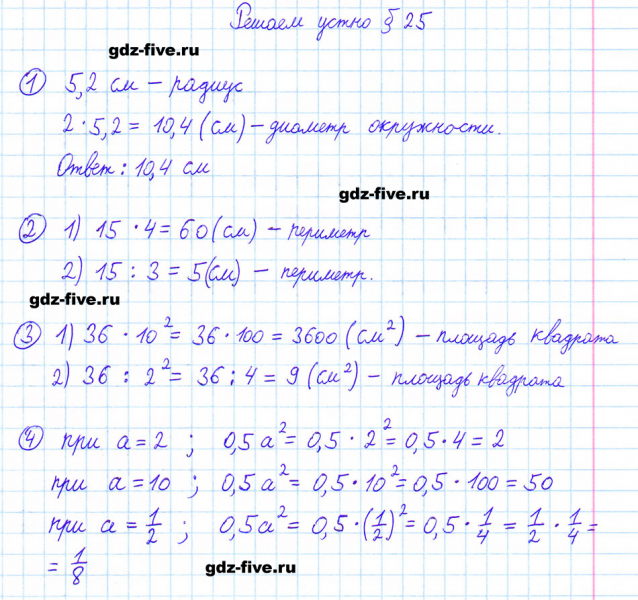 Решаем устно § 25
gdz-five.ru
① 5,2 см – радиус
2 · 5,2 = 10,4 (см) – диаметр окружности.
Ответ: 10,4 см
gdz-five.ru
② 1) 15 · 4 = 60 (см) – периметр
2) 15 : 3 = 5 (см) – периметр.
gdz-five.ru
③ 1) 36 · 10² = 36 · 100 = 3600 (см²) – площадь квадрата
2) 36 : 2² = 36 : 4 = 9 (см²) – площадь квадрата
④ при a = 2 ; 0,5 a² = 0,5 · 2² = 0,5 · 4 = 2
при a = 10 ; 0,5 a² = 0,5 · 10² = 0,5 · 100 = 50
при a = 1/2 ; 0,5a² = 0,5 · (1/2)² = 0,5 · 1/4 = 1/2 · 1/4 =
= 1/8
gdz-five.ru